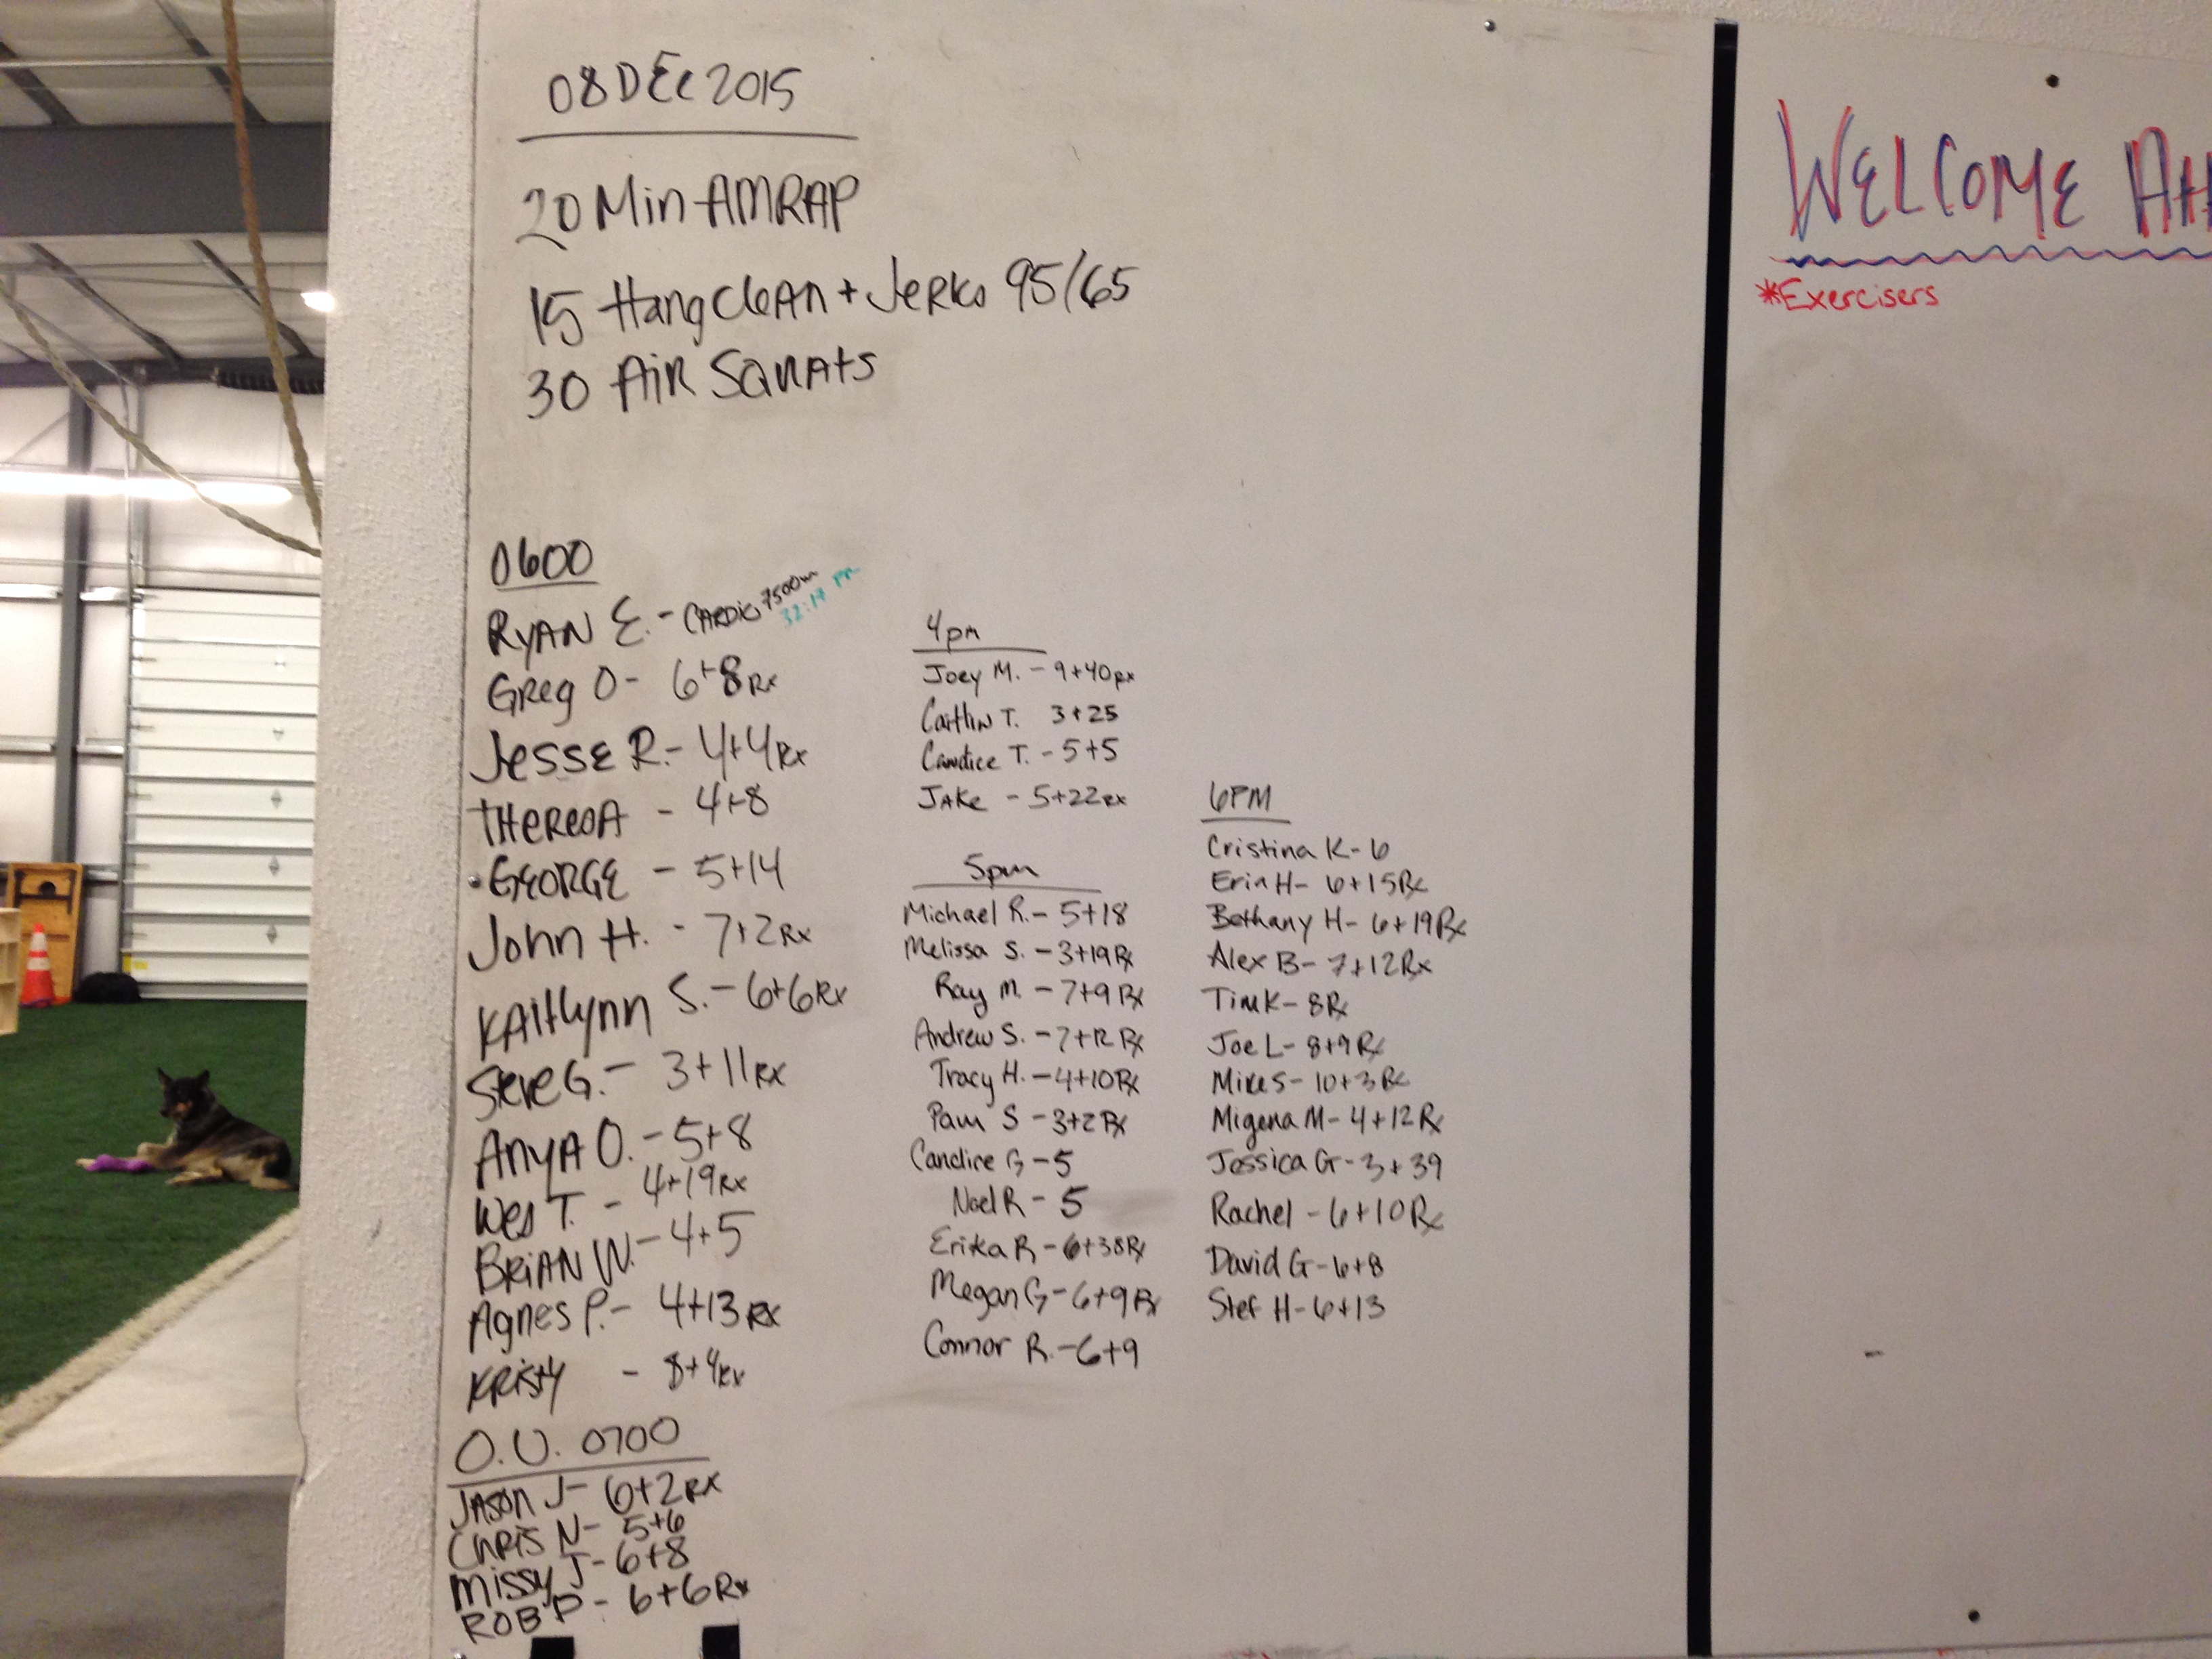 08 DEC 2015
20 Min AMRAP
15 Hang Clean + Jerks 95/65
30 Air Squats
0600
Ryan E. - Cardio 7500m
32:19 pr
Greg O - 6+8 Rx
Jesse R. - 4+4 Rx
Theresa - 4+8
George - 5+14
John H. - 7+2 Rx
Kaitlynn S. - 6+6 Rx
Steve G. - 3+11 Rx
Anya O. - 5+8
Wes T. - 4+19 Rx
Brian W. - 4+5
Agnes P. - 4+13 Rx
Kristy - 8+4 Rx
O.U. 0700
Jason J - 6+2 Rx
Chris N - 5+6
Missy J - 6+8
Rob P - 6+6 Rx
4pm
Joey M. - 9+40 Rx
Caitlin T. 3+25
Candice T. - 5+5
Jake - 5+22 Rx
5pm
Michael R. - 5+18
Melissa S. - 3+19 Rx
Ray M. - 7+9 Rx
Andrew S. - 7+12 Rx
Tracy H. - 4+10 Rx
Pam S - 3+2 Rx
Candice G - 5
Noel R - 5
Erika R - 6+38 Rx
Megan G - 6+9 Rx
Connor R. - 6+9
6PM
Cristina K - 6
Erin H - 6+15 Rx
Bethany H - 6+19 Rx
Alex B - 7+12 Rx
Tim K - 8 Rx
Joe L - 8+9 Rx
Mike S - 10+3 Rx
Migena M - 4+12 Rx
Jessica G - 3+39
Rachel - 6+10 Rx
David G - 6+8
Stef H - 6+13
WELCOME
*Exercisers